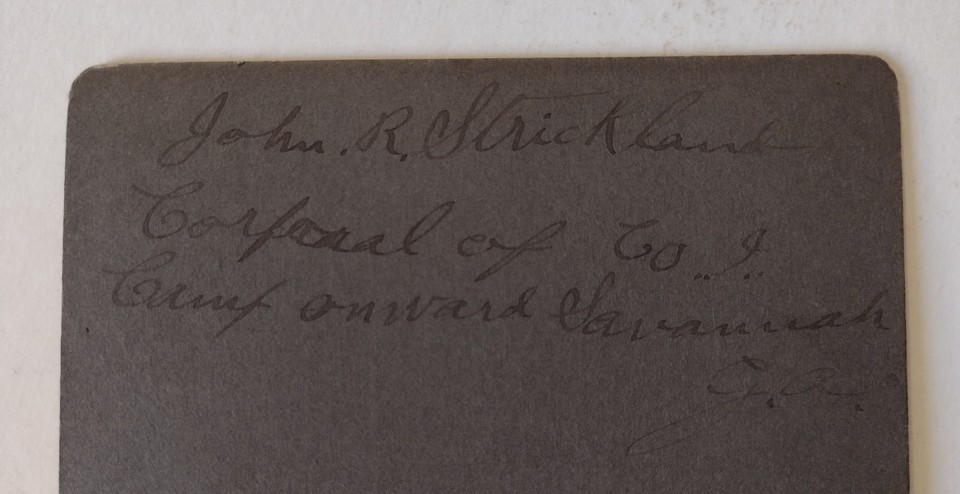 John. R. Strickland
Corporal of Co "I"
Camp onward Savannah
G.A.